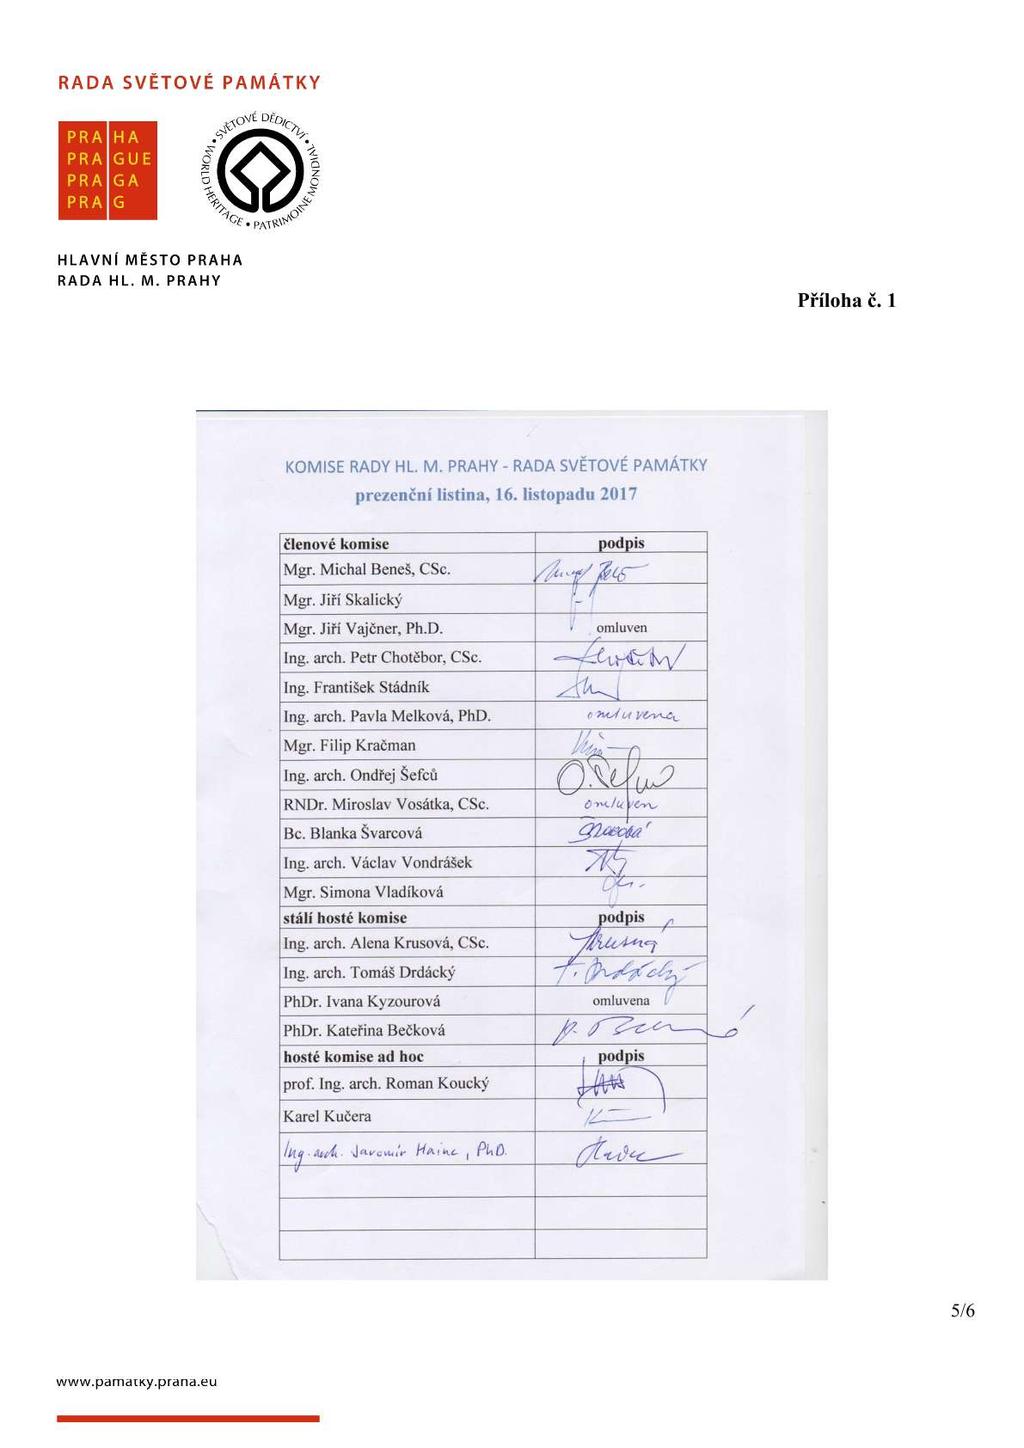 RADA SVĚTOVÉ PAMÁTKY
PRA HA
PRA GUE
PRA GA
PRA G
SVĚTOVÉ DĚDICTVÍ • WORLD HERITAGE • PATRIMOINE MONDIAL •
HLAVNÍ MĚSTO PRAHA
RADA HL. M. PRAHY
Příloha č. 1
KOMISE RADY HL. M. PRAHY - RADA SVĚTOVÉ PAMÁTKY
prezenční listina, 16. listopadu 2017
členové komise podpis
Mgr. Michal Beneš, CSc.
Mgr. Jiří Skalický
Mgr. Jiří Vajčner, Ph.D. omluven
Ing. arch. Petr Chotěbor, CSc.
Ing. František Stádník
Ing. arch. Pavla Melková, PhD. omluvena
Mgr. Filip Kračman
Ing. arch. Ondřej Šefců O. Šefců
RNDr. Miroslav Vosátka, CSc. omluven
Bc. Blanka Švarcová Švarcová
Ing. arch. Václav Vondrášek
Mgr. Simona Vladíková
stálí hosté komise podpis
Ing. arch. Alena Krusová, CSc. Krusová
Ing. arch. Tomáš Drdácký T. Drdácký
PhDr. Ivana Kyzourová omluvena
PhDr. Kateřina Bečková
hosté komise ad hoc podpis
prof. Ing. arch. Roman Koucký
Karel Kučera
Ing. arch. Jaromír Hainc, PhD.
5/6
www.pamatky.praha.eu